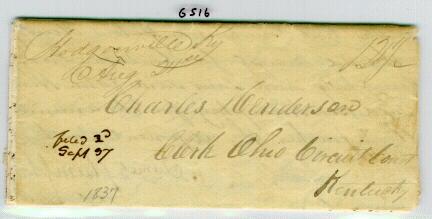 6516
Hodgenville Ky
Aug
12½
Charles Henderson
Clerk Ohio Circuit Court
Kentucky
filed 2d
Sept 37
1837